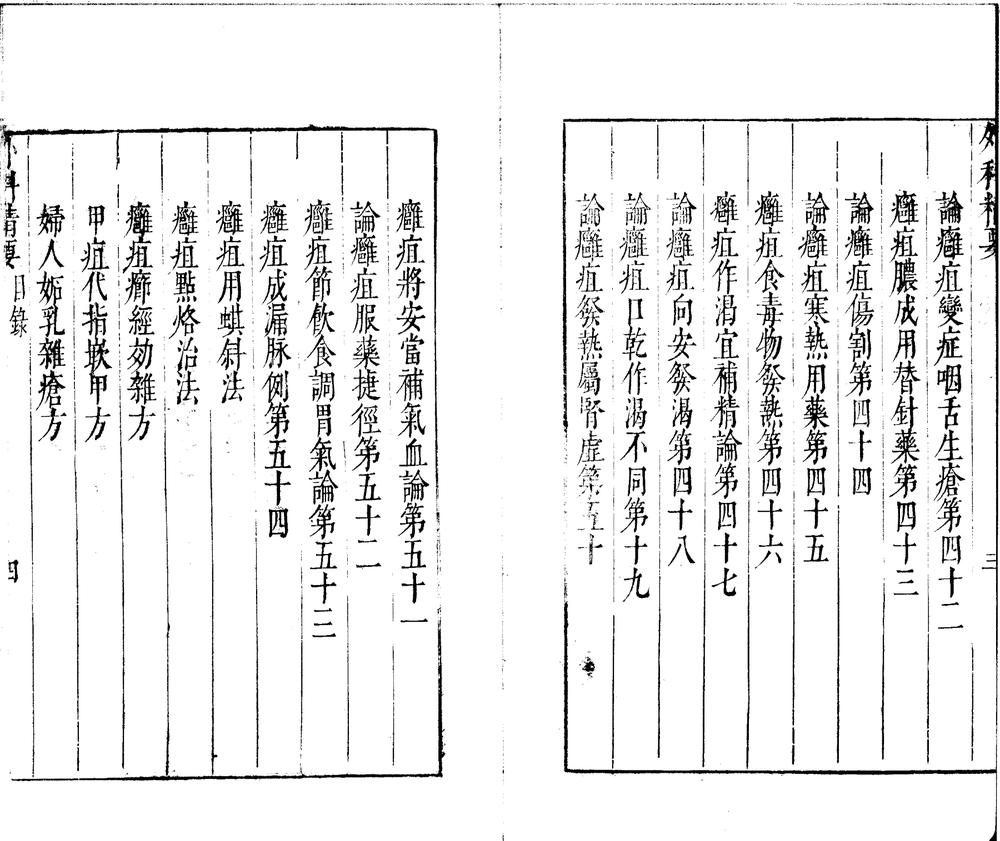 外科精要
三
論癰疽變症咽舌生瘡第四十二
癰疽膿成用替針藥第四十三
論癰疽傷割第四十四
論癰疽寒熱用藥第四十五
癰疽食毒物發熱第四十六
癰疽作渴宜補精論第四十七
論癰疽向安發渴第四十八
論癰疽口乾作渴不同第十九
論癰疽發熱屬腎虛第五十
癰疽將安當補氣血論第五十一
論癰疽服藥捷徑第五十二
癰疽節飲食調胃氣論第五十三
癰疽成漏脉例第五十四
癰疽用蜞鍼法
癰疽點烙治法
癰疽癤經効雜方
甲疽代指嵌甲方
婦人妬乳雜瘡方
外科精要 目錄
四